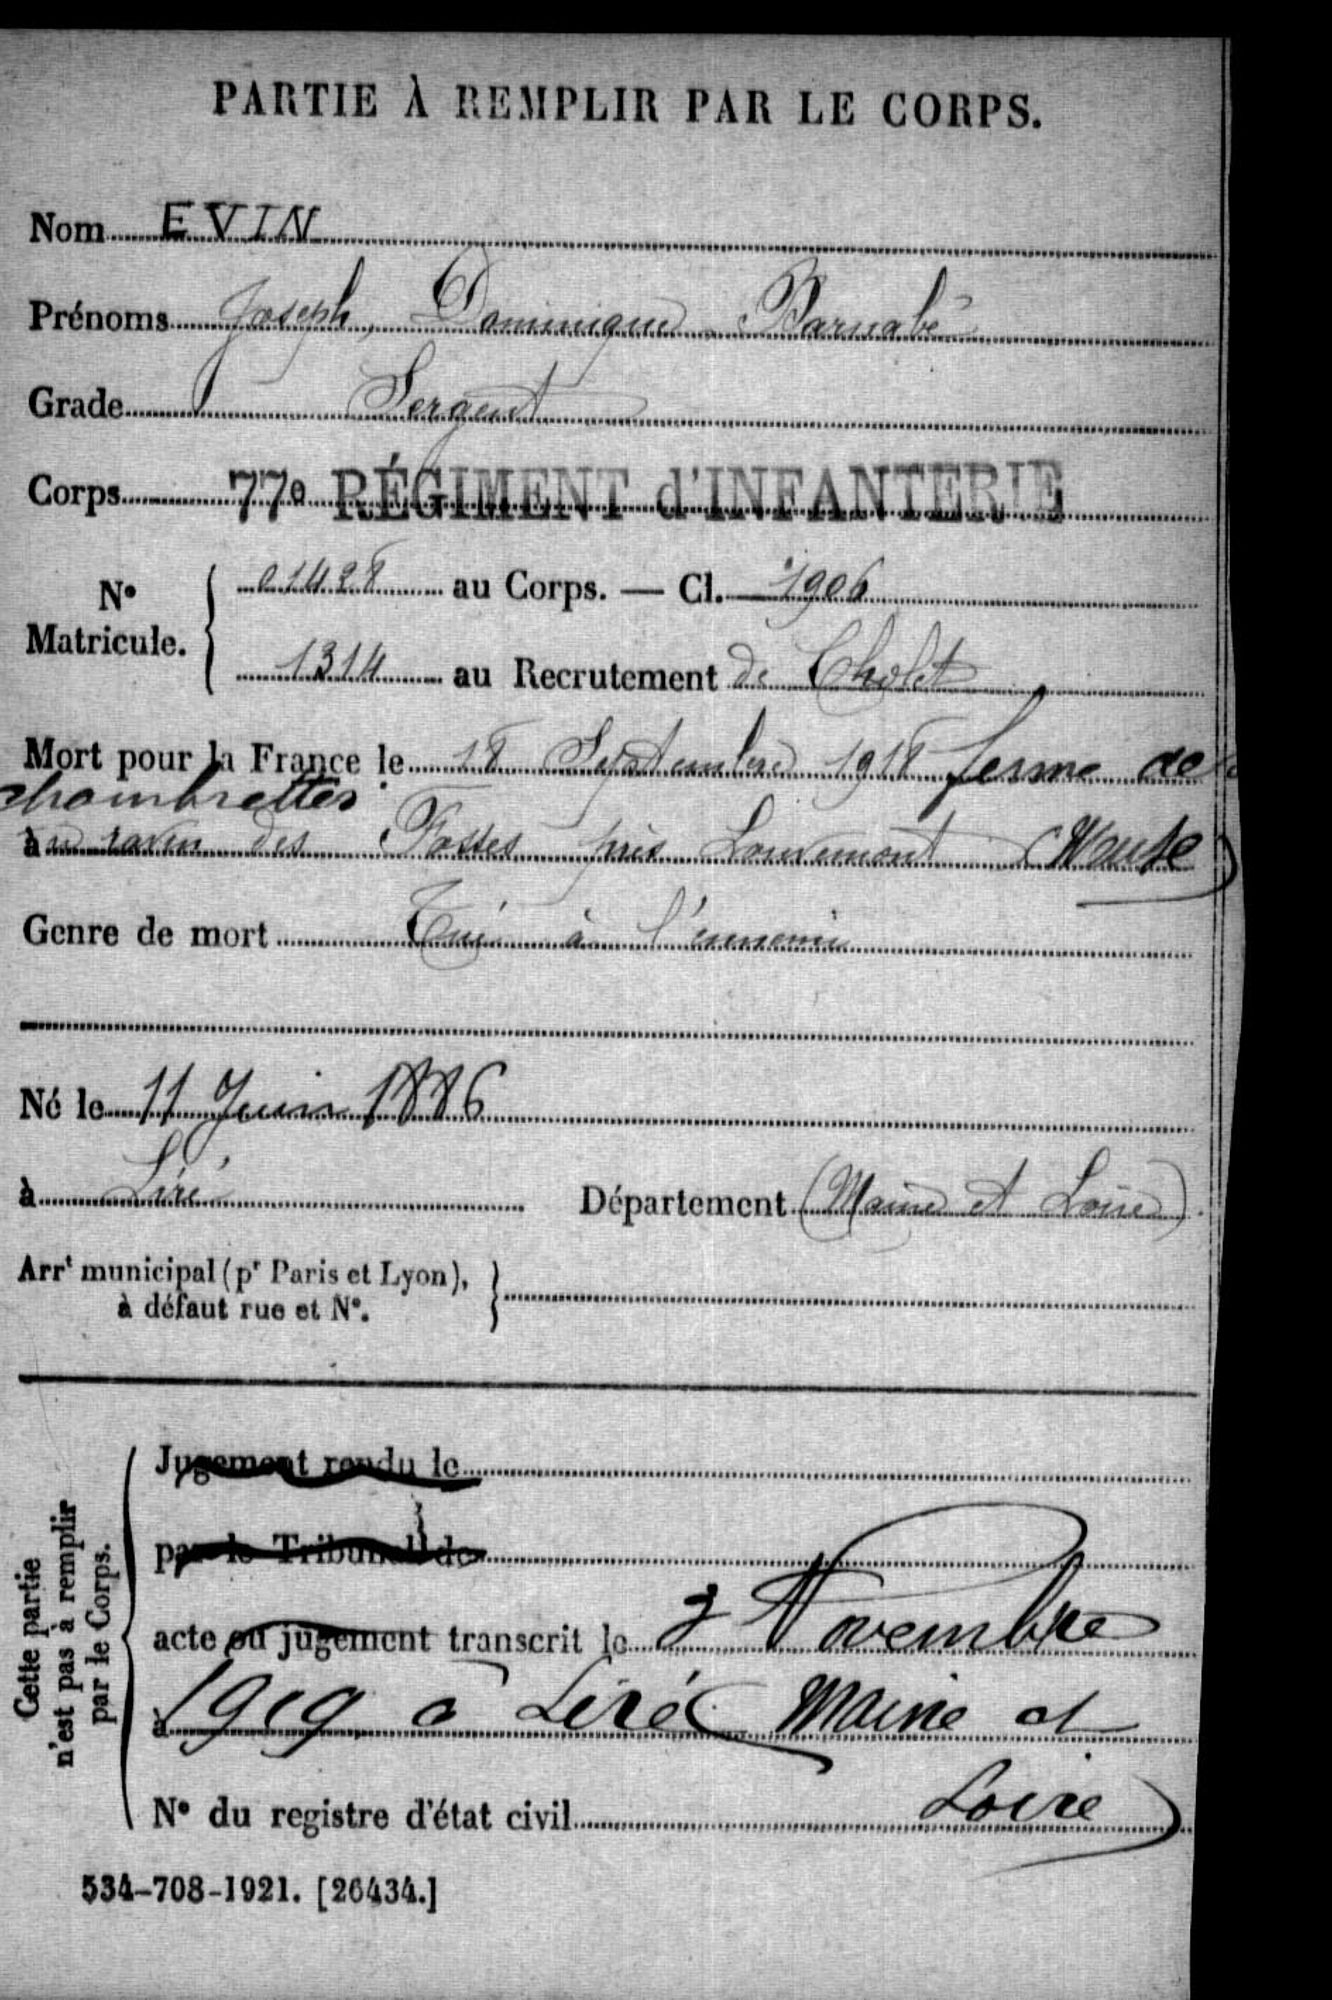 PARTIE À REMPLIR PAR LE CORPS.
Nom EVIN
Prénoms Joseph, Dominique, Barnabé
Grade Sergent
Corps 77e RÉGIMENT d'INFANTERIE
N° Matricule. 01428 au Corps. — Cl. 1906
1314 au Recrutement de Cholet
Mort pour la France le 18 Septembre 1918 ferme de
chambrettes
à au ravin des Fosses près Louvemont (Meuse)
Genre de mort Tué à l'ennemi
Né le 11 Juin 1886
à Liré Département (Maine et Loire)
Arrt municipal (pr Paris et Lyon),
à défaut rue et N°.
Cette partie
n'est pas à remplir
par le Corps.
Jugement rendu le
par le Tribunal de
acte ou jugement transcrit le 3 Novembre
à 1919 à Liré (Maine et
Loire)
N° du registre d'état civil
534-708-1921. [26434.]